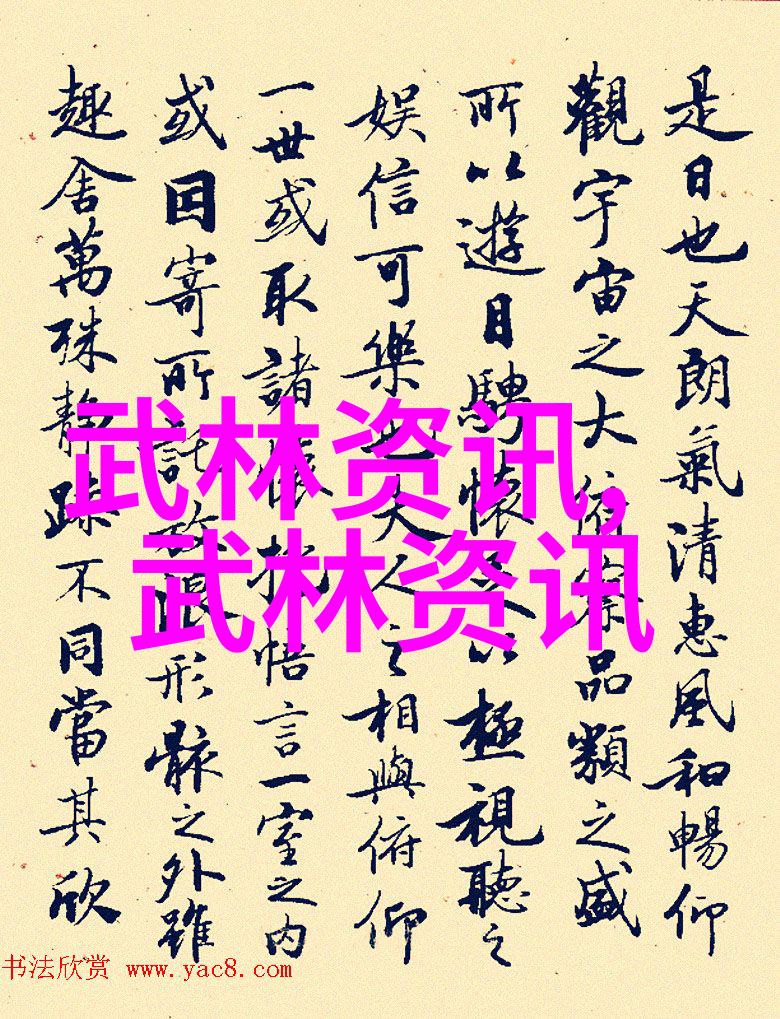 是日也天朗氣清惠風和暢仰
觀宇宙之大俯察品類之盛
所以遊目騁懷足以極視聽之
娱信可樂也夫人之相與俯仰
一世或取諸懷抱悟言一室之内
或因寄所託放浪形骸之外雖
趣舍萬殊静躁不同當其欣
武林资讯,
武林资讯
书法欣赏 www.yac8.com